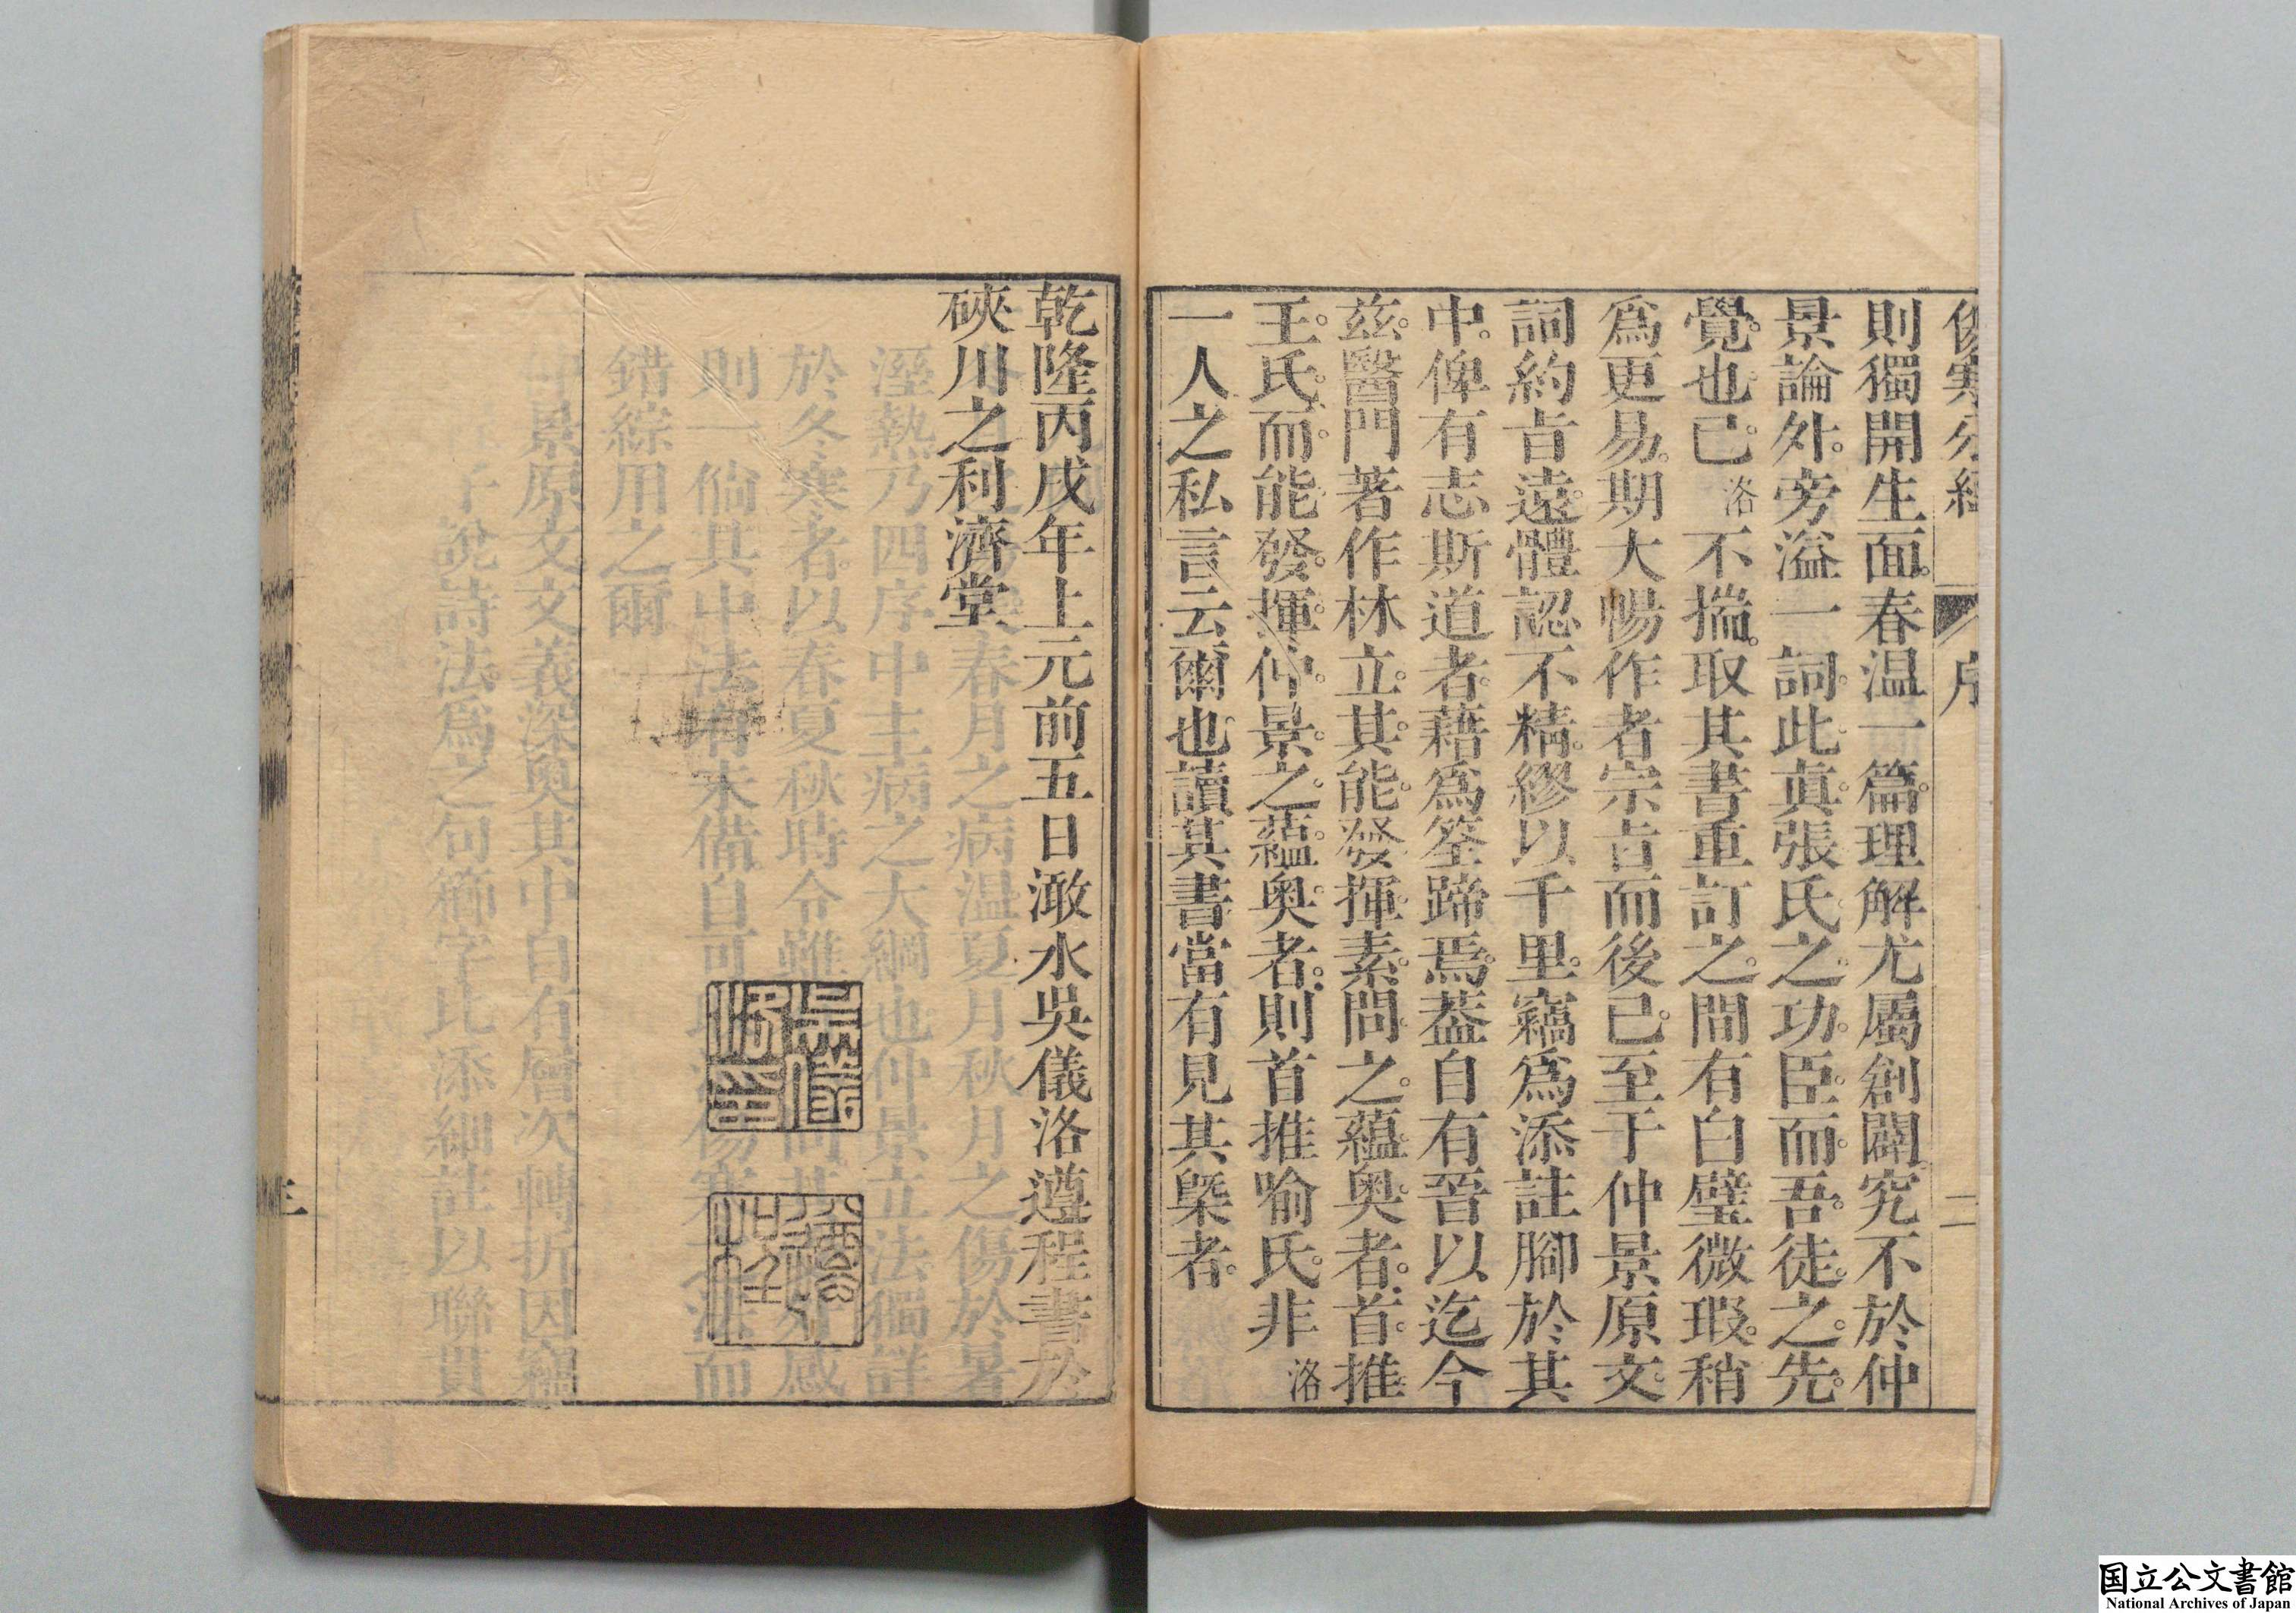 傷寒分經 序 二
則獨開生面。春温一篇。理解尤屬創闢。究不於仲
景論外。旁溢一詞。此真張氏之功臣。而吾徒之先
覺也已。洛不揣。取其書重訂之。間有白璧微瑕。稍
爲更易。期大暢作者宗旨而後已。至于仲景原文
詞約旨遠。體認不精。繆以千里。竊爲添註腳於其
中。俾有志斯道者。藉爲筌蹄焉。葢自有晉以迄今
茲。醫門著作林立。其能發揮素問之蘊奥者。首推
王氏。而能發揮仲景之蘊奥者。則首推喻氏。非洛
一人之私言云爾也。讀其書當有見其槩者。
乾隆丙戌年上元前五日澉水吳儀洛遵程書於
硤川之利濟堂
吳儀洛印
国立公文書館
National Archives of Japan